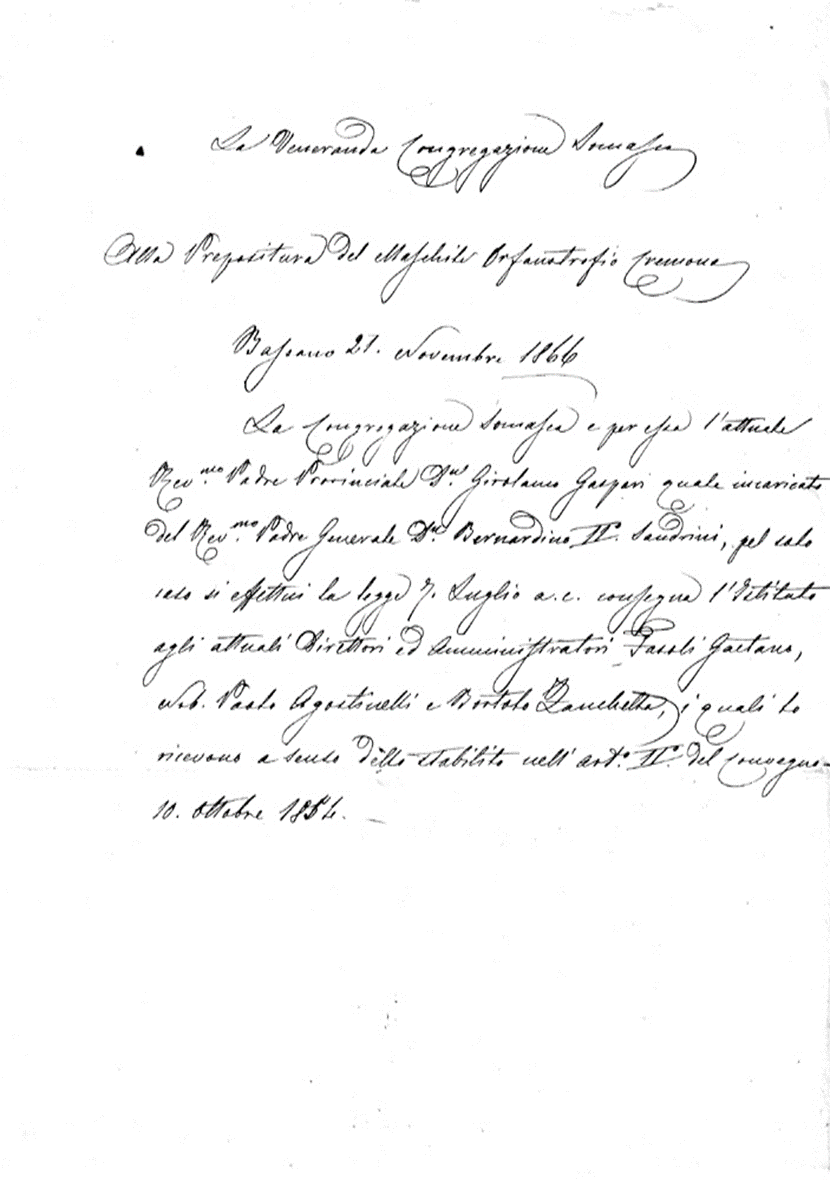 La Veneranda Congregazione Somasca
Alla Prepositura del Maschile Orfanotrofio Cremona
Bassano 21. Novembre 1866
La Congregazione Somasca e per essa l'attuale
Rev.mo Padre Provinciale Dn. Girolamo Gaspari quale incaricato
del Rev.mo Padre Generale Dn. Bernardino II. Sandrini, pel solo
caso si effettui la legge 7. Luglio a.c. consegna l'Istituto
agli attuali Direttori ed Amministratori Fasoli Gaetano,
Nob. Paolo Agostinelli e Bortolo Zanchetta, i quali lo
ricevono a senso dello stabilito nell'art.o II. del Convegno
10. Ottobre 1854.